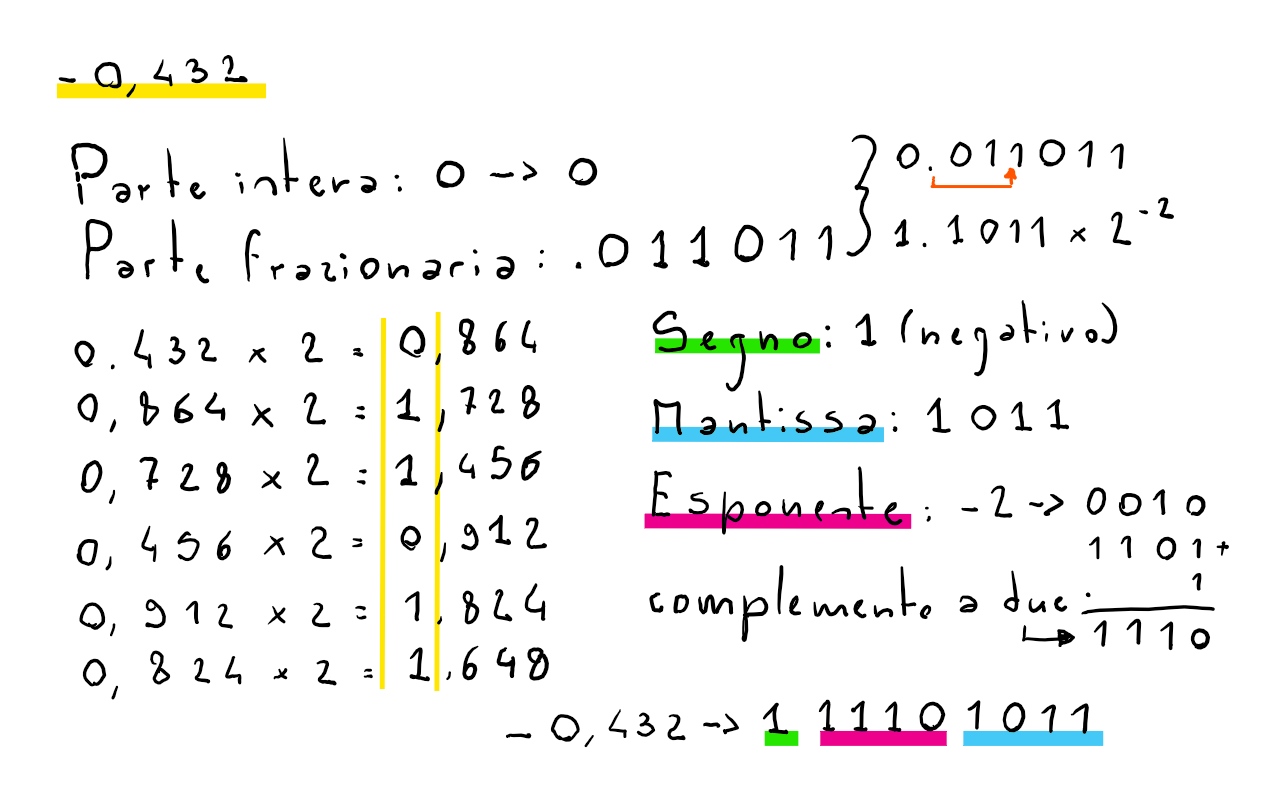 -0,432
Parte intera: 0 -> 0
Parte frazionaria: .011011
0.011011
1.1011 × 2^-2
0.432 × 2 = 0,864
0,864 × 2 = 1,728
0,728 × 2 = 1,456
0,456 × 2 = 0,912
0,912 × 2 = 1,824
0,824 × 2 = 1,648
Segno: 1 (negativo)
Mantissa: 1011
Esponente: -2 -> 0010
1101+
1
complemento a due:
1110
-0,432 -> 1 1110 1011